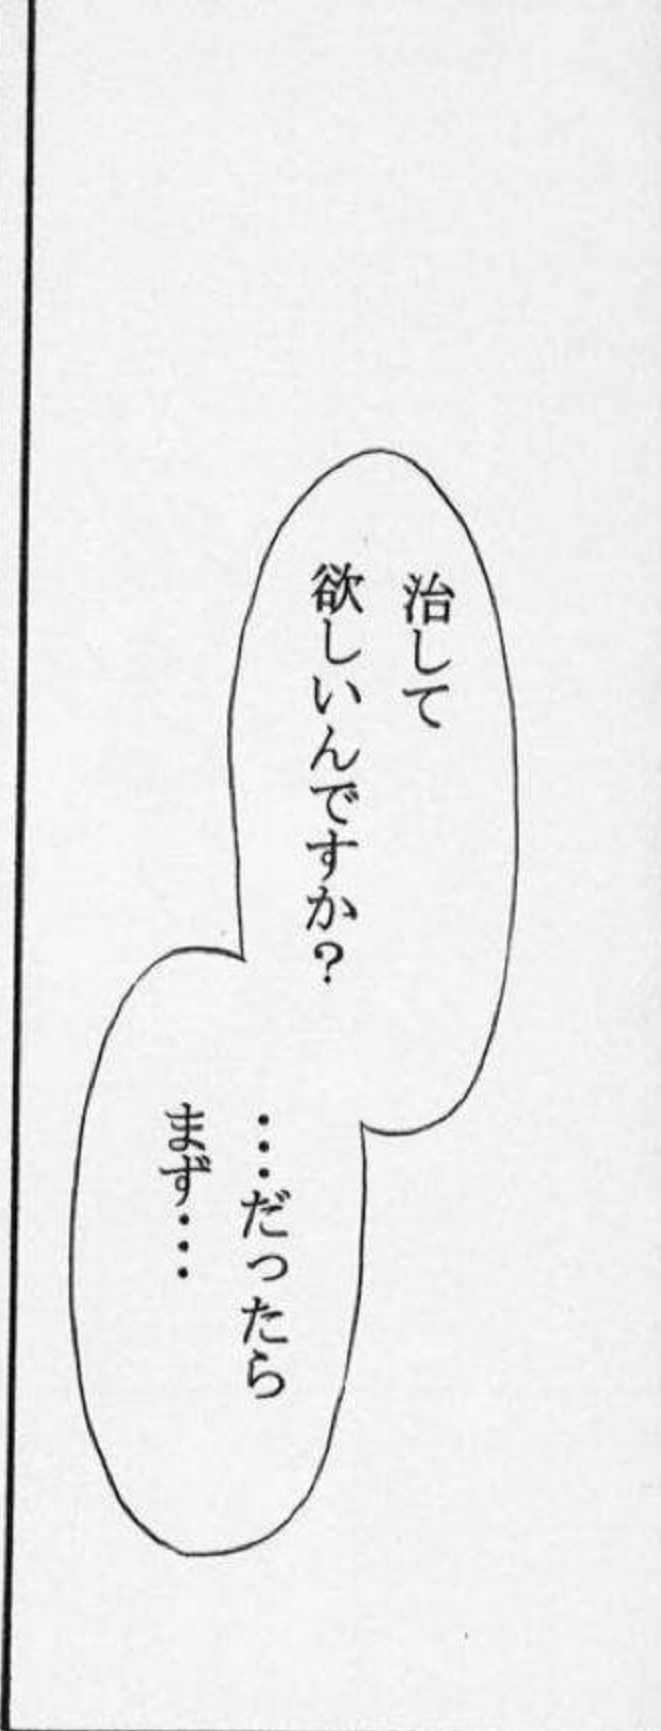 治して
欲しいんですか？
…だったら
まず…